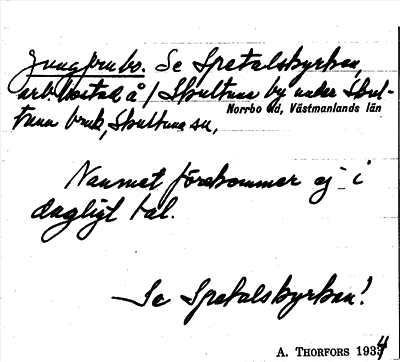 Jungfrubo. Se Spetalskyrkan,
arb. bostad å / Skultuna by under Skul-
Norrbo hd, Västmanlands län
tuna bruk, Skultuna sn,
Namnet förekommer ej i
dagligt tal.
Se Spetalskyrkan!
A. THORFORS 1934